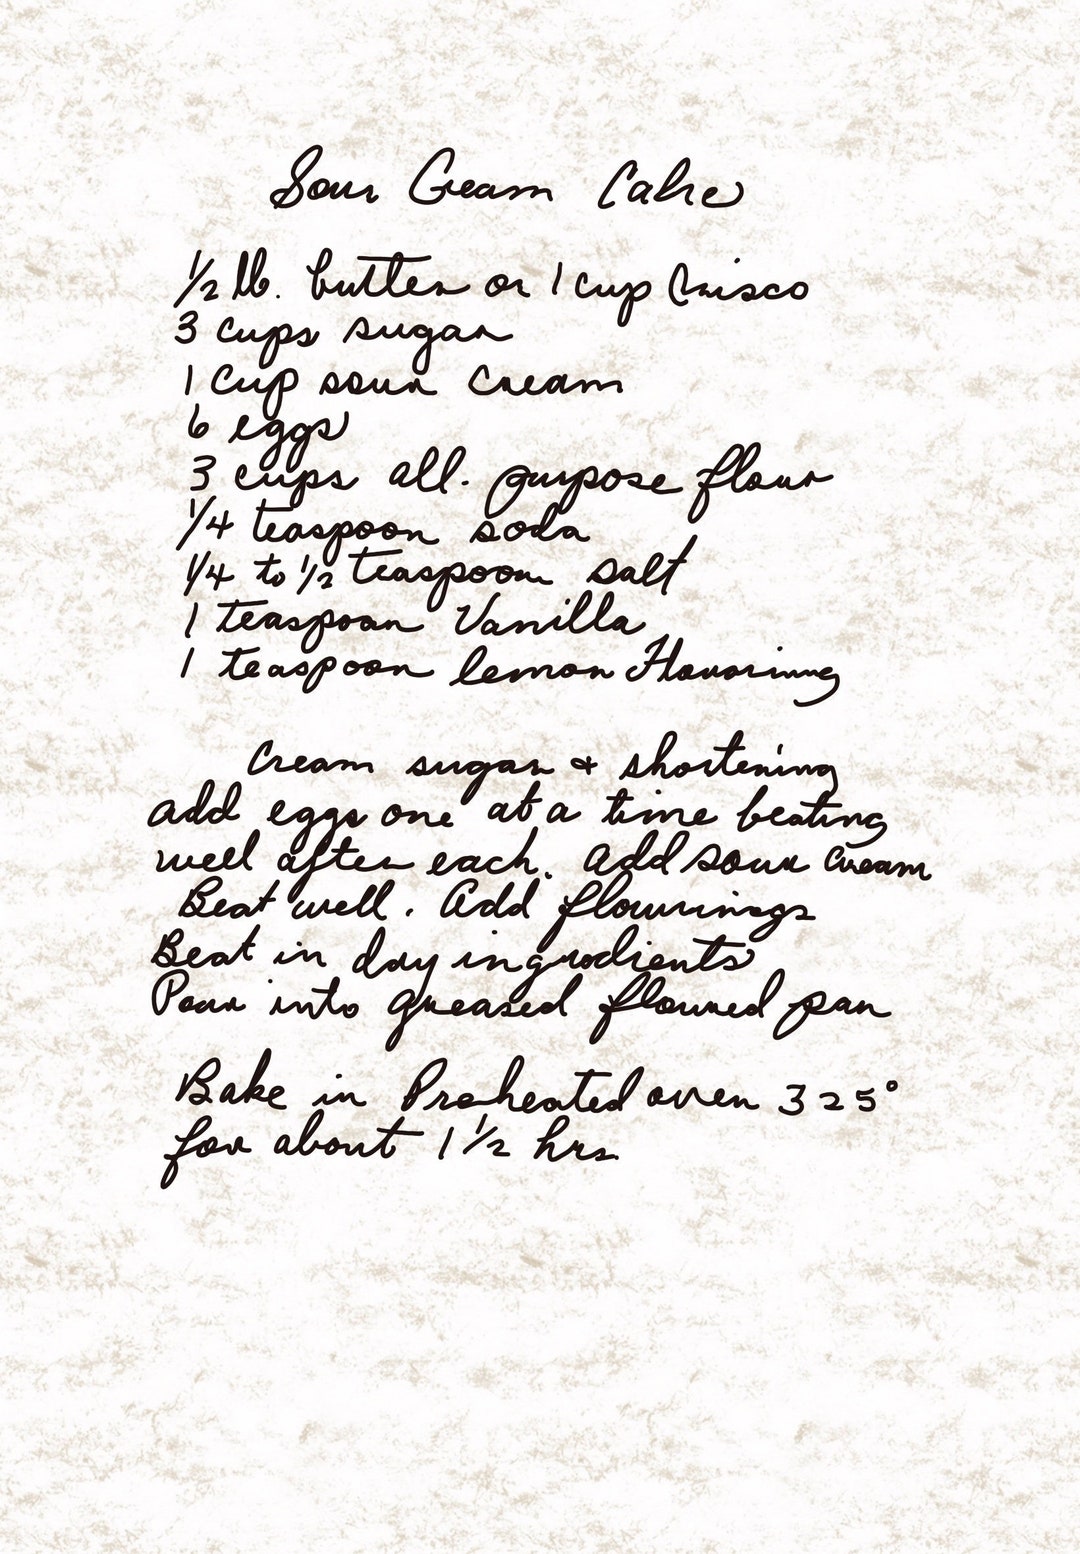 Sour Cream Cake
1/2 lb. butter or 1 cup Crisco
3 cups sugar
1 cup sour cream
6 eggs
3 cups all-purpose flour
1/4 teaspoon soda
1/4 to 1/2 teaspoon salt
1 teaspoon Vanilla
1 teaspoon lemon Flavoring
Cream sugar & shortening
add eggs one at a time beating
well after each. Add sour cream
Beat well. Add flavorings
Beat in dry ingredients
Pour into greased floured pan
Bake in Preheated oven 325°
for about 1 1/2 hrs